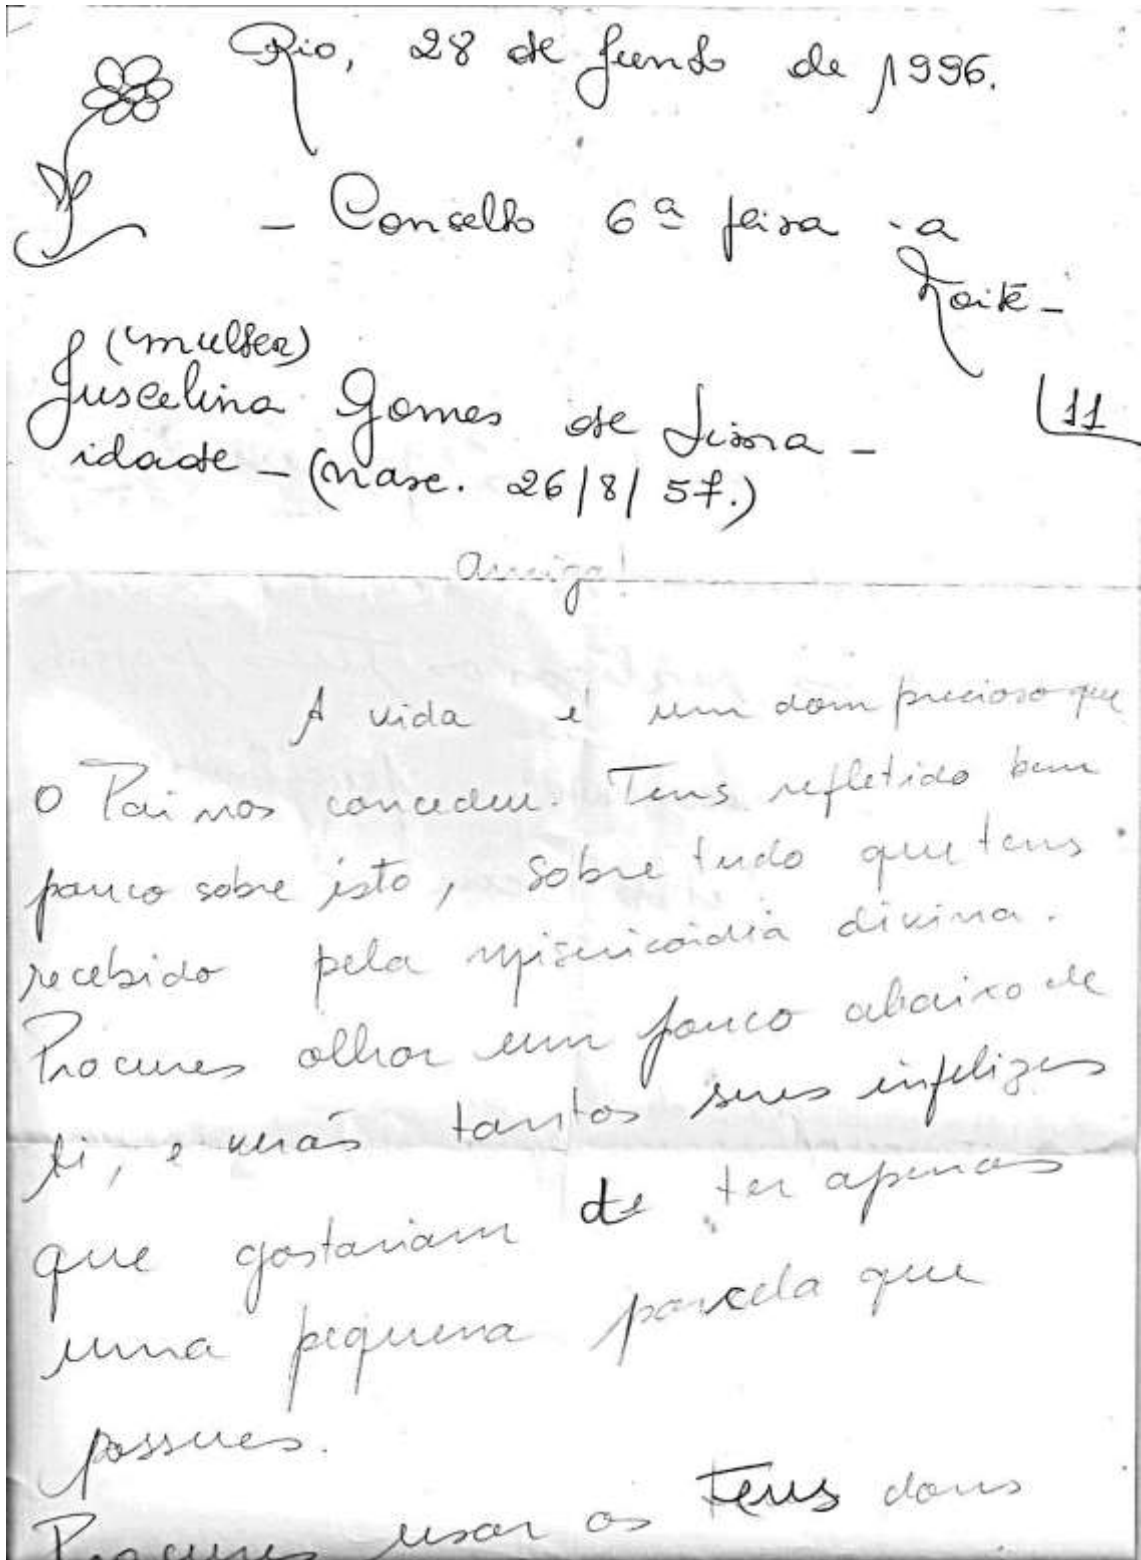 Rio, 28 de Junho de 1996.
- Conselho 6ª feira - a
Noite -
(mulher)
Juscelina Gomes de Lima -
11
idade - (nasc. 26/8/57.)
Amiga!
A vida é um dom precioso que
o Pai nos concedeu. Tens refletido bem
pouco sobre isto, sobre tudo que tens
recebido pela misericórdia divina.
Procures olhar um pouco abaixo de
ti, e verás tantos seres infelizes
que gostariam de ter apenas
uma pequena parcela que
possues.
Procures usar os teus dons